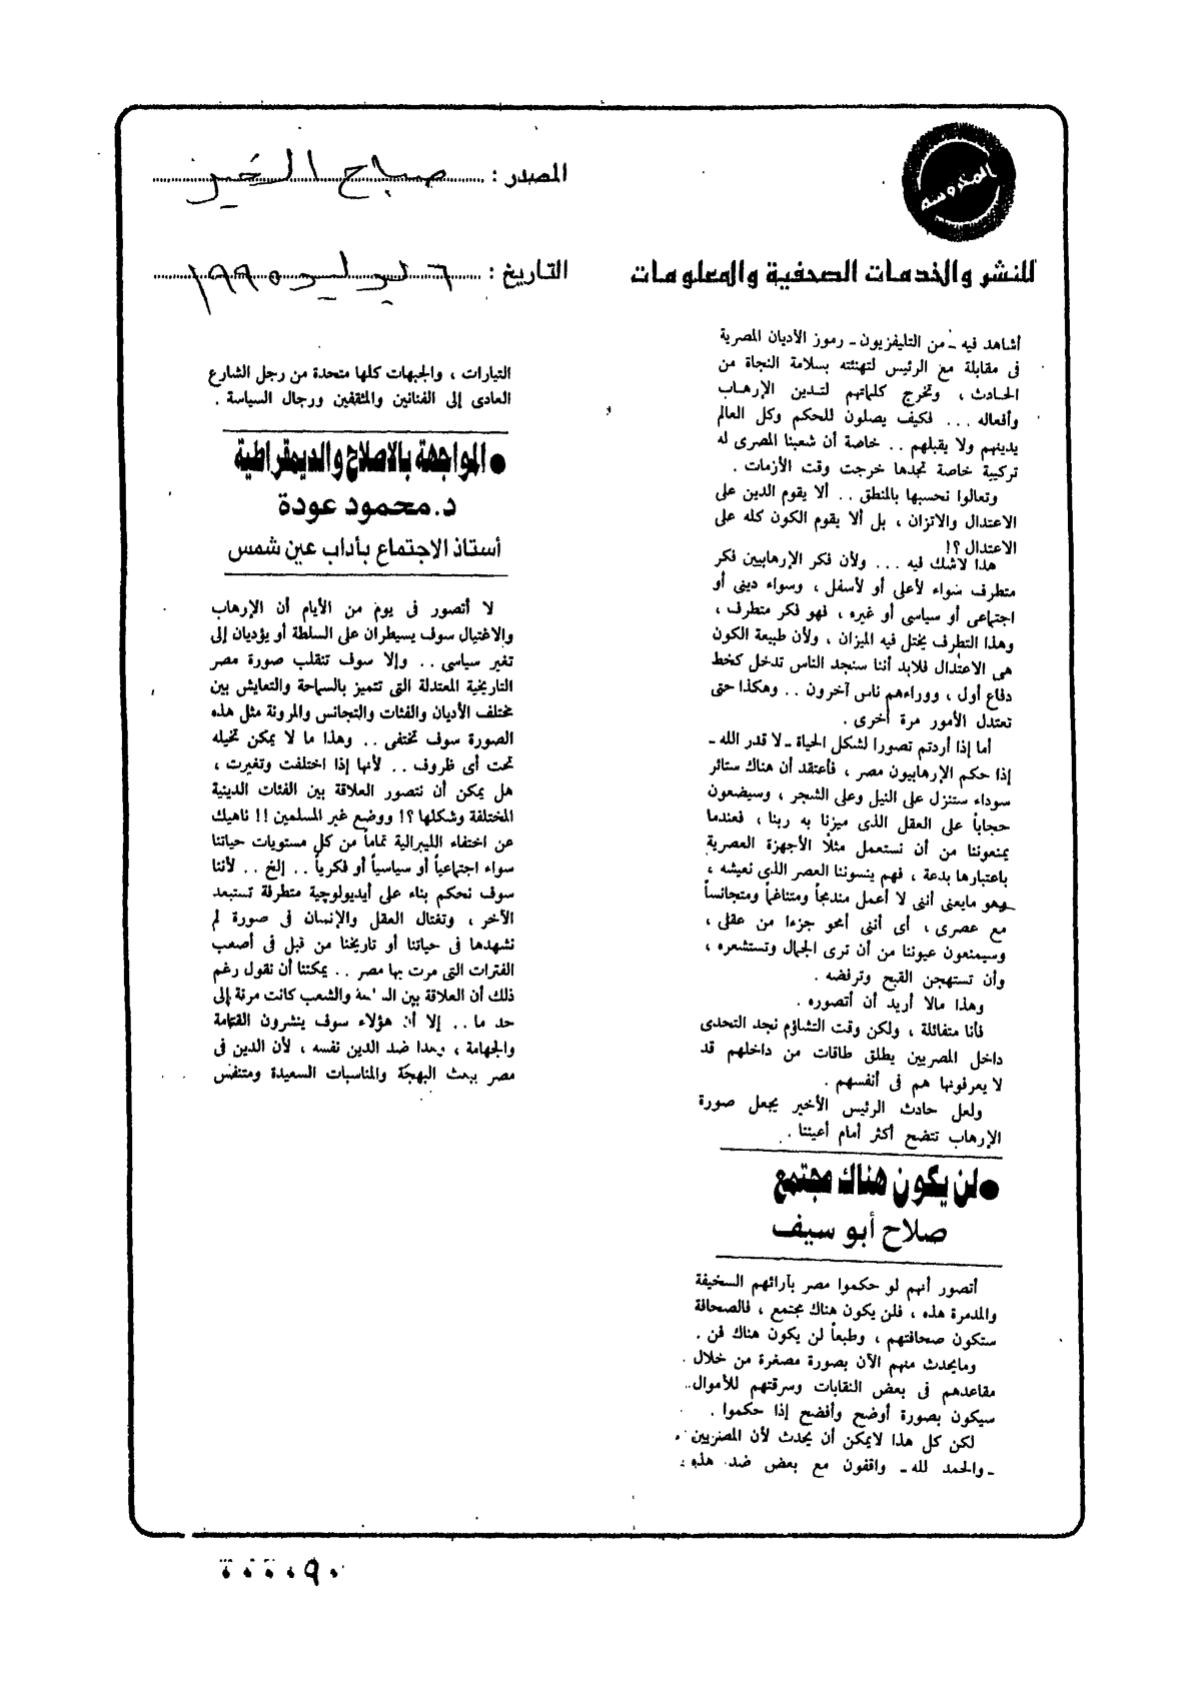 المحروسة
للنشر والخدمات الصحفية والمعلومات
المصدر : صباح الخير
التاريخ : ٦ يوليو ١٩٩٥
أشاهد فيه ـ من التليفزيون ـ رموز الأديان المصرية
فى مقابلة مع الرئيس لتهنئته بسلامة النجاة من
الحادث ، وتخرج كلماتهم لتدين الإرهاب
وأفعاله ... فكيف يصلون للحكم وكل العالم
يدينهم ولا يقبلهم .. خاصة أن شعبنا المصرى له
تركيبة خاصة تجدها خرجت وقت الأزمات .
وتعالوا نحسبها بالمنطق .. ألا يقوم الدين على
الاعتدال والاتزان ، بل ألا يقوم الكون كله على
الاعتدال ؟!
هذا لاشك فيه ... ولأن فكر الإرهابيين فكر
متطرف سواء لأعلى أو لأسفل ، وسواء دينى أو
اجتماعى أو سياسى أو غيره ، فهو فكر متطرف ،
وهذا التطرف يختل فيه الميزان ، ولأن طبيعة الكون
هى الاعتدال فلابد أننا سنجد الناس تدخل كخط
دفاع أول ، ووراءهم ناس آخرون .. وهكذا حتى
تعتدل الأمور مرة أخرى .
أما إذا أردتم تصورا لشكل الحياة ـ لا قدر الله ـ
إذا حكم الإرهابيون مصر ، فأعتقد أن هناك ستائر
سوداء ستنزل على النيل وعلى الشجر ، وسيضعون
حجاباً على العقل الذى ميزنا به ربنا ، فعندما
يمنعوننا من أن نستعمل مثلاً الأجهزة العصرية
باعتبارها بدعة ، فهم ينسوننا العصر الذى نعيشه ،
وهو مايعنى أننى لا أعمل مندمجاً ومتناغماً ومتجانساً
مع عصرى ، أى أننى أمحو جزءا من عقلى ،
وسيمنعون عيوننا من أن ترى الجمال وتستشعره ،
وأن تستهجن القبح وترفضه .
وهذا مالا أريد أن أتصوره .
فأنا متفائلة ، ولكن وقت التشاؤم نجد التحدى
داخل المصريين يطلق طاقات من داخلهم قد
لا يعرفونها هم فى أنفسهم .
ولعل حادث الرئيس الأخير يجعل صورة
الإرهاب تتضح أكثر أمام أعيننا .
● لن يكون هناك مجتمع
صلاح أبو سيف
أتصور أنهم لو حكموا مصر بآرائهم السخيفة
والمدمرة هذه ، فلن يكون هناك مجتمع ، فالصحافة
ستكون صحافتهم ، وطبعاً لن يكون هناك فن .
ومايحدث منهم الآن بصورة مصغرة من خلال
مقاعدهم فى بعض النقابات وسرقتهم للأموال ..
سيكون بصورة أوضح وأفضح إذا حكموا .
لكن كل هذا لايمكن أن يحدث لأن المصريين
ـ والحمد لله ـ واقفون مع بعض ضد هذه
التيارات ، والجبهات كلها متحدة من رجل الشارع
العادى إلى الفنانين والمثقفين ورجال السياسة .
● المواجهة بالاصلاح والديمقراطية
د. محمود عودة
أستاذ الاجتماع بأداب عين شمس
لا أتصور فى يوم من الأيام أن الإرهاب
والاغتيال سوف يسيطران على السلطة أو يؤديان إلى
تغير سياسى .. وإلا سوف تنقلب صورة مصر
التاريخية المعتدلة التى تتميز بالسماحة والتعايش بين
مختلف الأديان والفئات والتجانس والمرونة مثل هذه
الصورة سوف تختفى .. وهذا ما لا يمكن تخيله
تحت أى ظروف .. لأنها إذا اختلفت وتغيرت ،
هل يمكن أن نتصور العلاقة بين الفئات الدينية
المختلفة وشكلها ؟! ووضع غير المسلمين !! ناهيك
عن اختفاء الليبرالية تماماً من كل مستويات حياتنا
سواء اجتماعياً أو سياسياً أو فكرياً .. إلخ .. لأننا
سوف نحكم بناء على أيديولوجية متطرفة تستبعد
الآخر ، وتغتال العقل والإنسان فى صورة لم
نشهدها فى حياتنا أو تاريخنا من قبل فى أصعب
الفترات التى مرت بها مصر .. يمكننا أن نقول رغم
ذلك أن العلاقة بين والشعب كانت مرنة إلى
حد ما .. إلا أن هؤلاء سوف ينشرون القتامة
والجهامة ، وهذا ضد الدين نفسه ، لأن الدين فى
مصر يبعث البهجة والمناسبات السعيدة ومتنفس